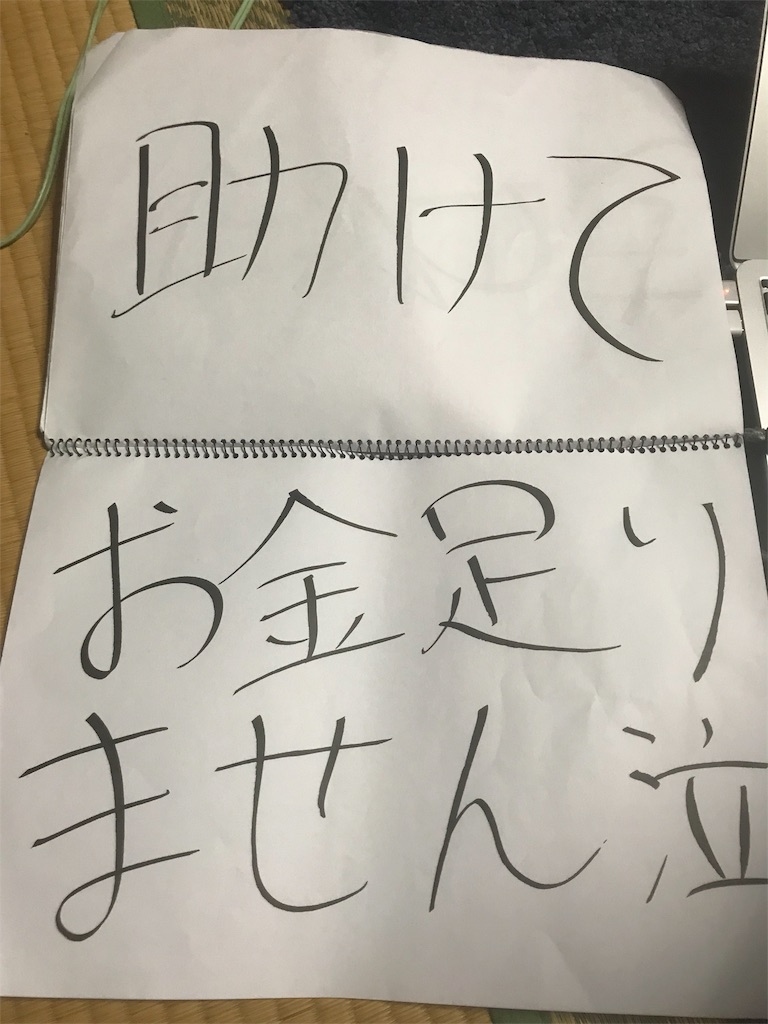 助けて
お金足り
ません泣